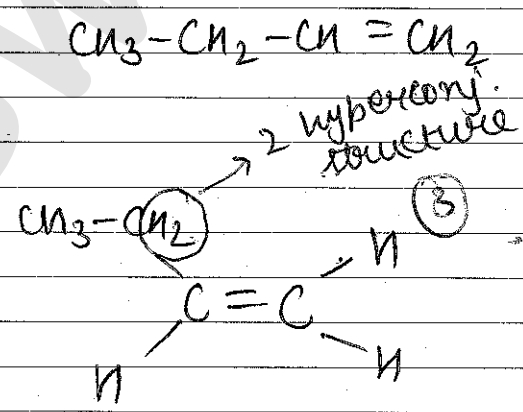 CH3-CH2-CH=CH2
2 hyperconj.
structure
CH3-CH2
3
H
C=C
H
H